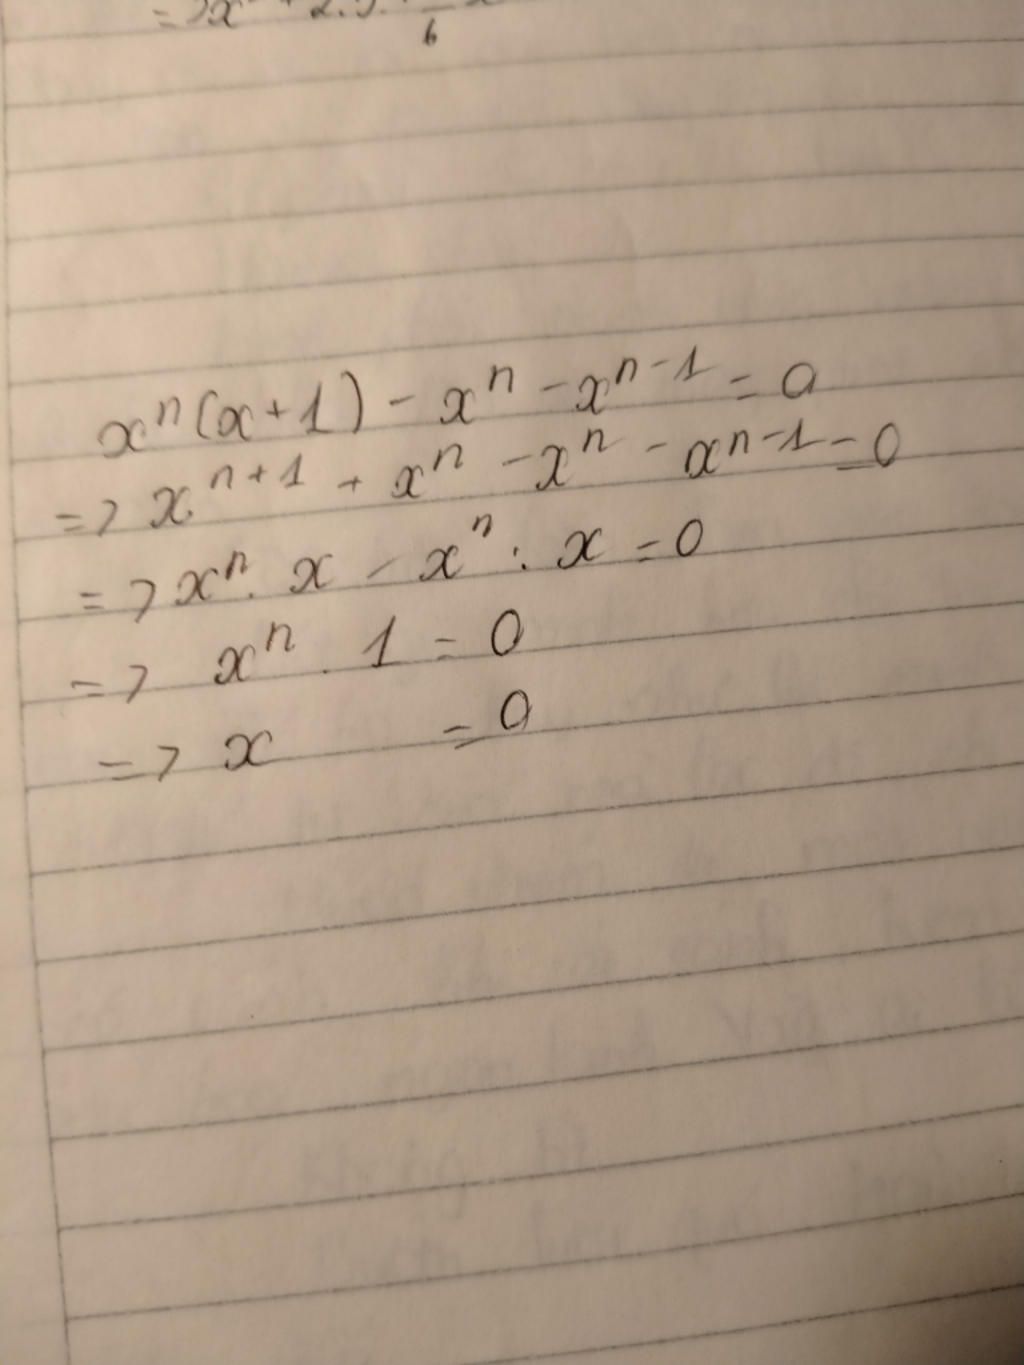 x^n(x+1) - x^n - x^{n-1} = 0
=> x^{n+1} + x^n - x^n - x^{n-1} = 0
=> x^n . x - x^n : x = 0
=> x^n . 1 = 0
=> x = 0